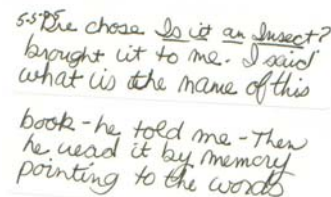 5-5-95
He chose Is it an Insect?
brought it to me. I said
what is the name of this
book - he told me - Then
he read it by memory
pointing to the words